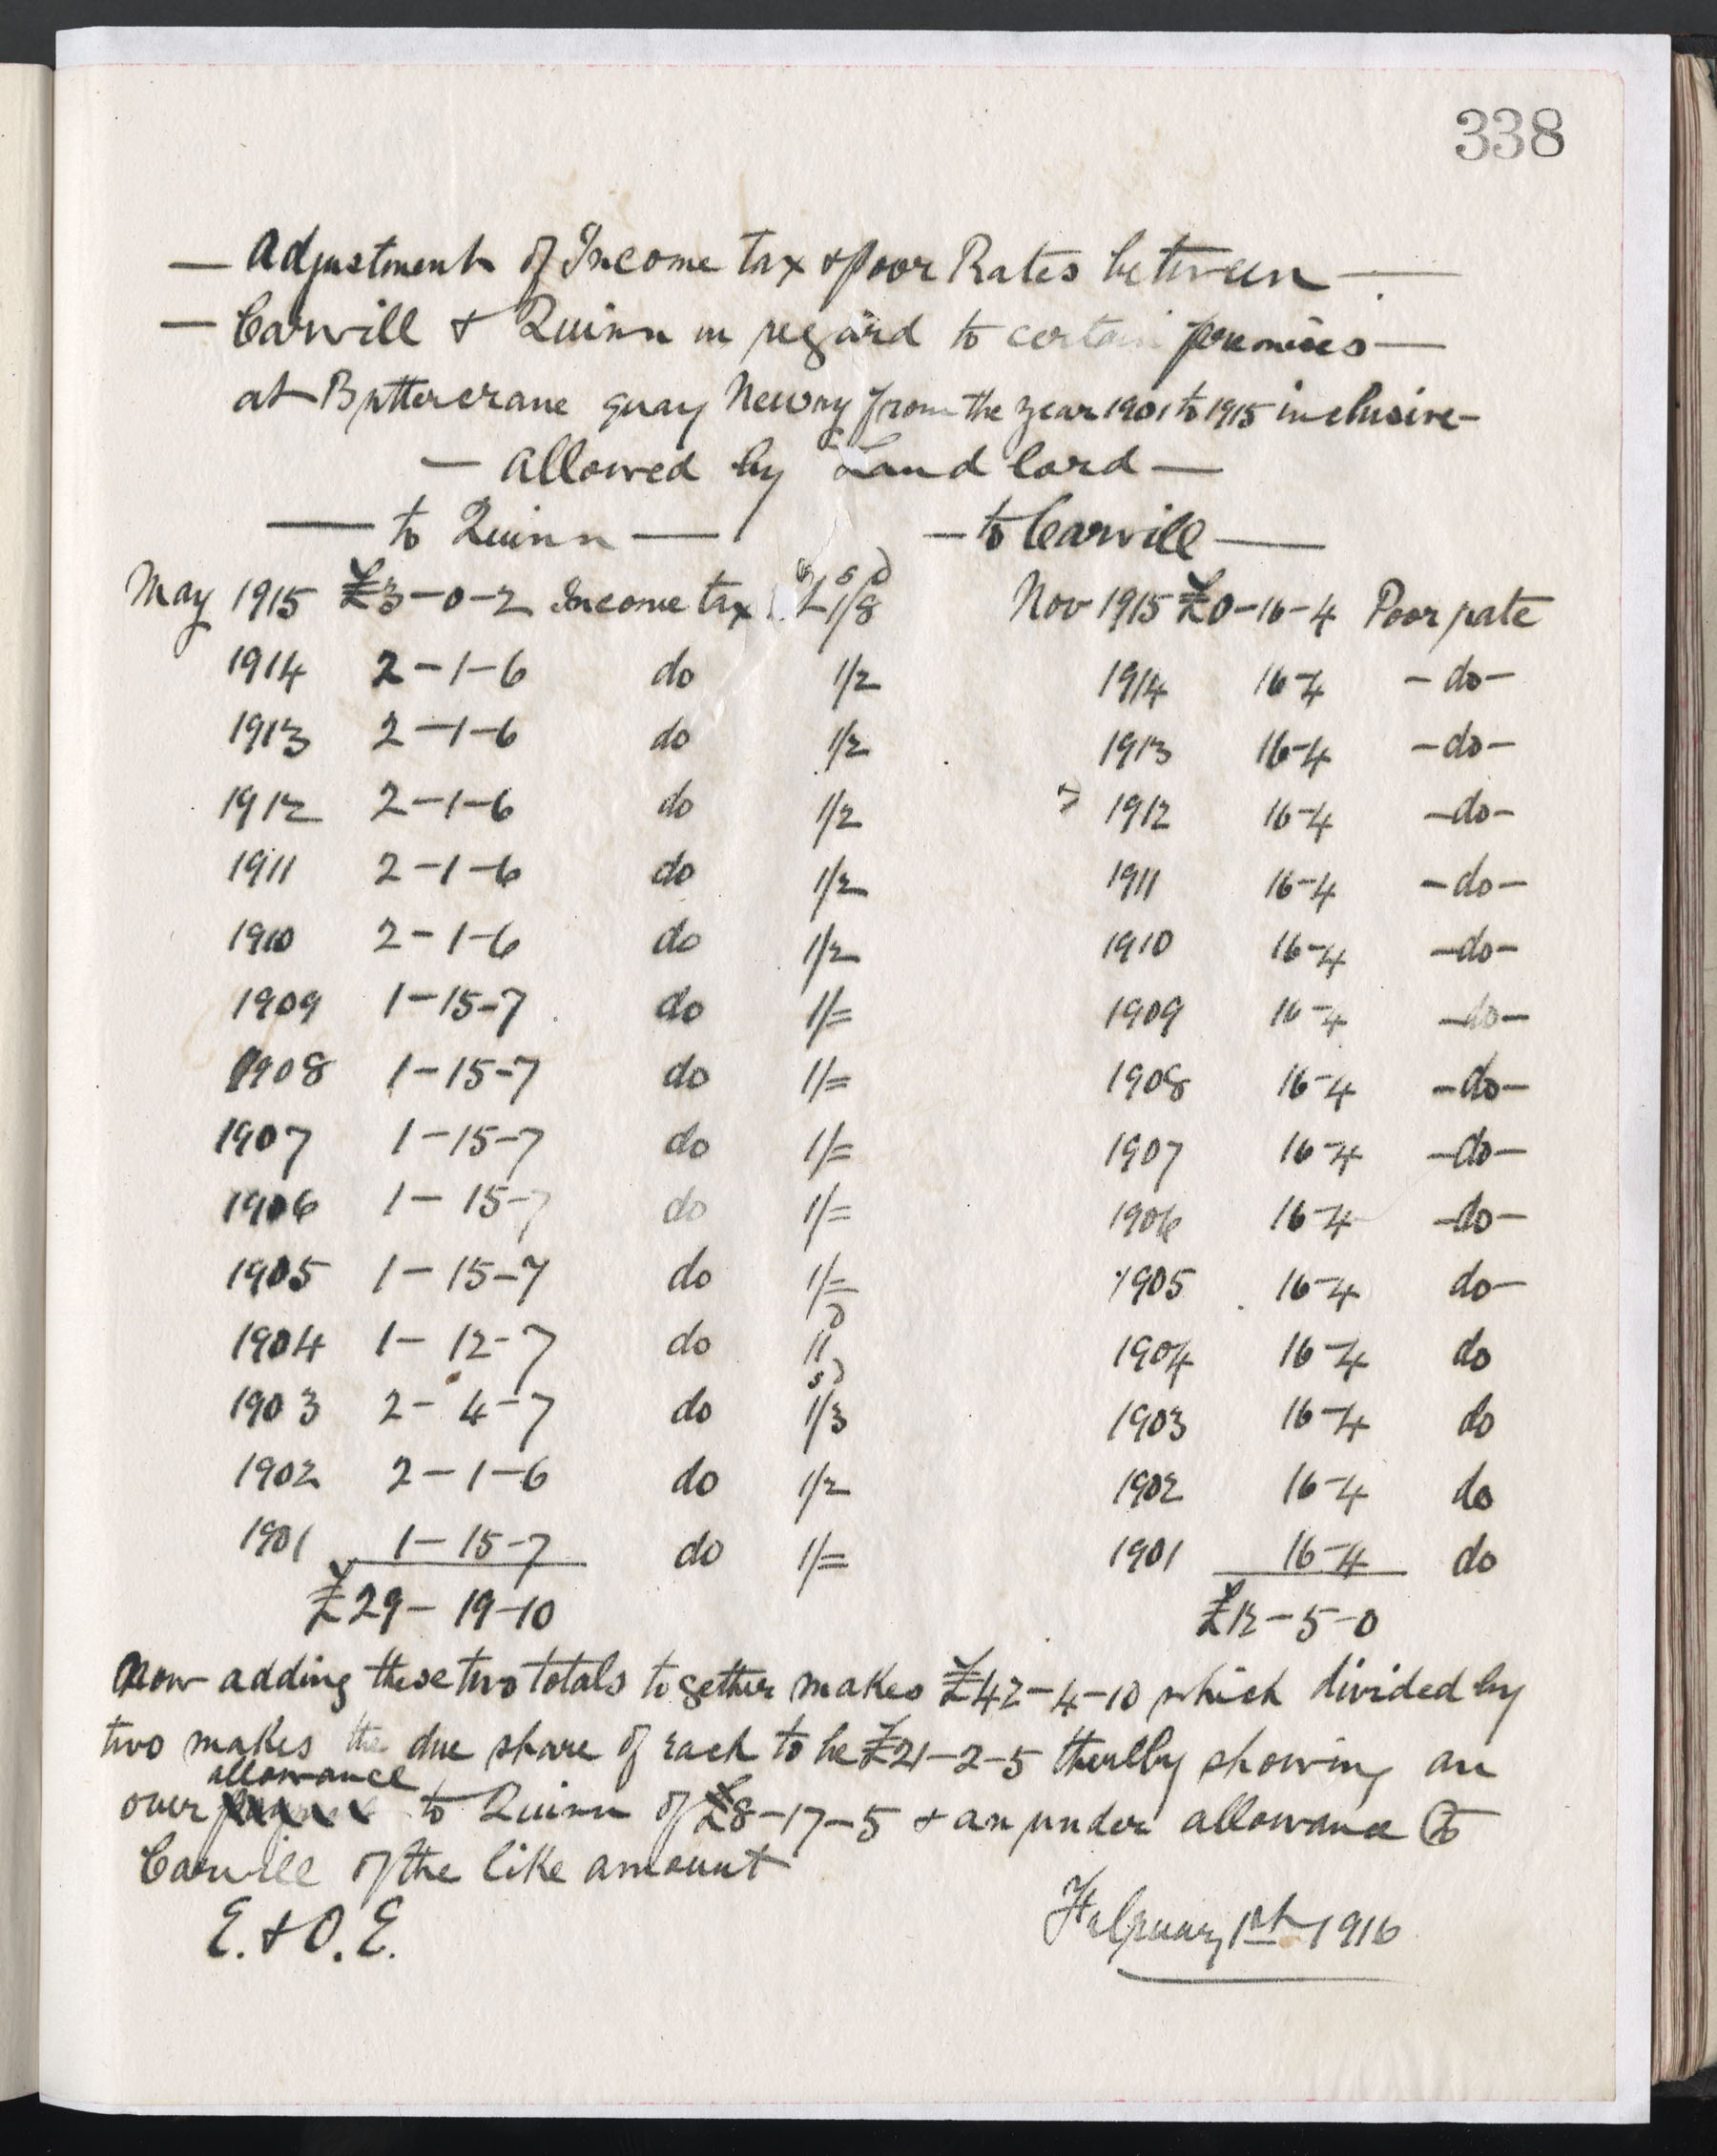 338
— Adjustment of Income tax & Poor Rates between —
— Carvill & Quinn in regard to certain premises —
at Buttercrane quay Newry from the year 1901 to 1915 inclusive —
— allowed by Landlord —
— to Quinn — — to Carvill —
May 1915 £3-0-2 Income tax @ £ s d 1/8 Nov 1915 £0-16-4 Poor rate
1914 2-1-6 do 1/2 1914 16-4 -do-
1913 2-1-6 do 1/2 1913 16-4 -do-
1912 2-1-6 do 1/2 1912 16-4 -do-
1911 2-1-6 do 1/2 1911 16-4 -do-
1910 2-1-6 do 1/2 1910 16-4 -do-
1909 1-15-7 do 1/= 1909 16-4 -do-
1908 1-15-7 do 1/= 1908 16-4 -do-
1907 1-15-7 do 1/= 1907 16-4 -do-
1906 1-15-7 do 1/= 1906 16-4 -do-
1905 1-15-7 do 1/= 1905 16-4 do-
1904 1-12-7 do 11d 1904 16-4 do
1903 2-4-7 do s d 1/3 1903 16-4 do
1902 2-1-6 do 1/2 1902 16-4 do
1901 1-15-7 do 1/= 1901 16-4 do
£29-19-10 £12-5-0
Now adding these two totals together makes £42-4-10 which divided by
two makes the due share of each to be £21-2-5 thereby showing an
over allowance to Quinn of £8-17-5 & an under allowance to
Carvill of the like amount
E. & O. E. February 1st 1916